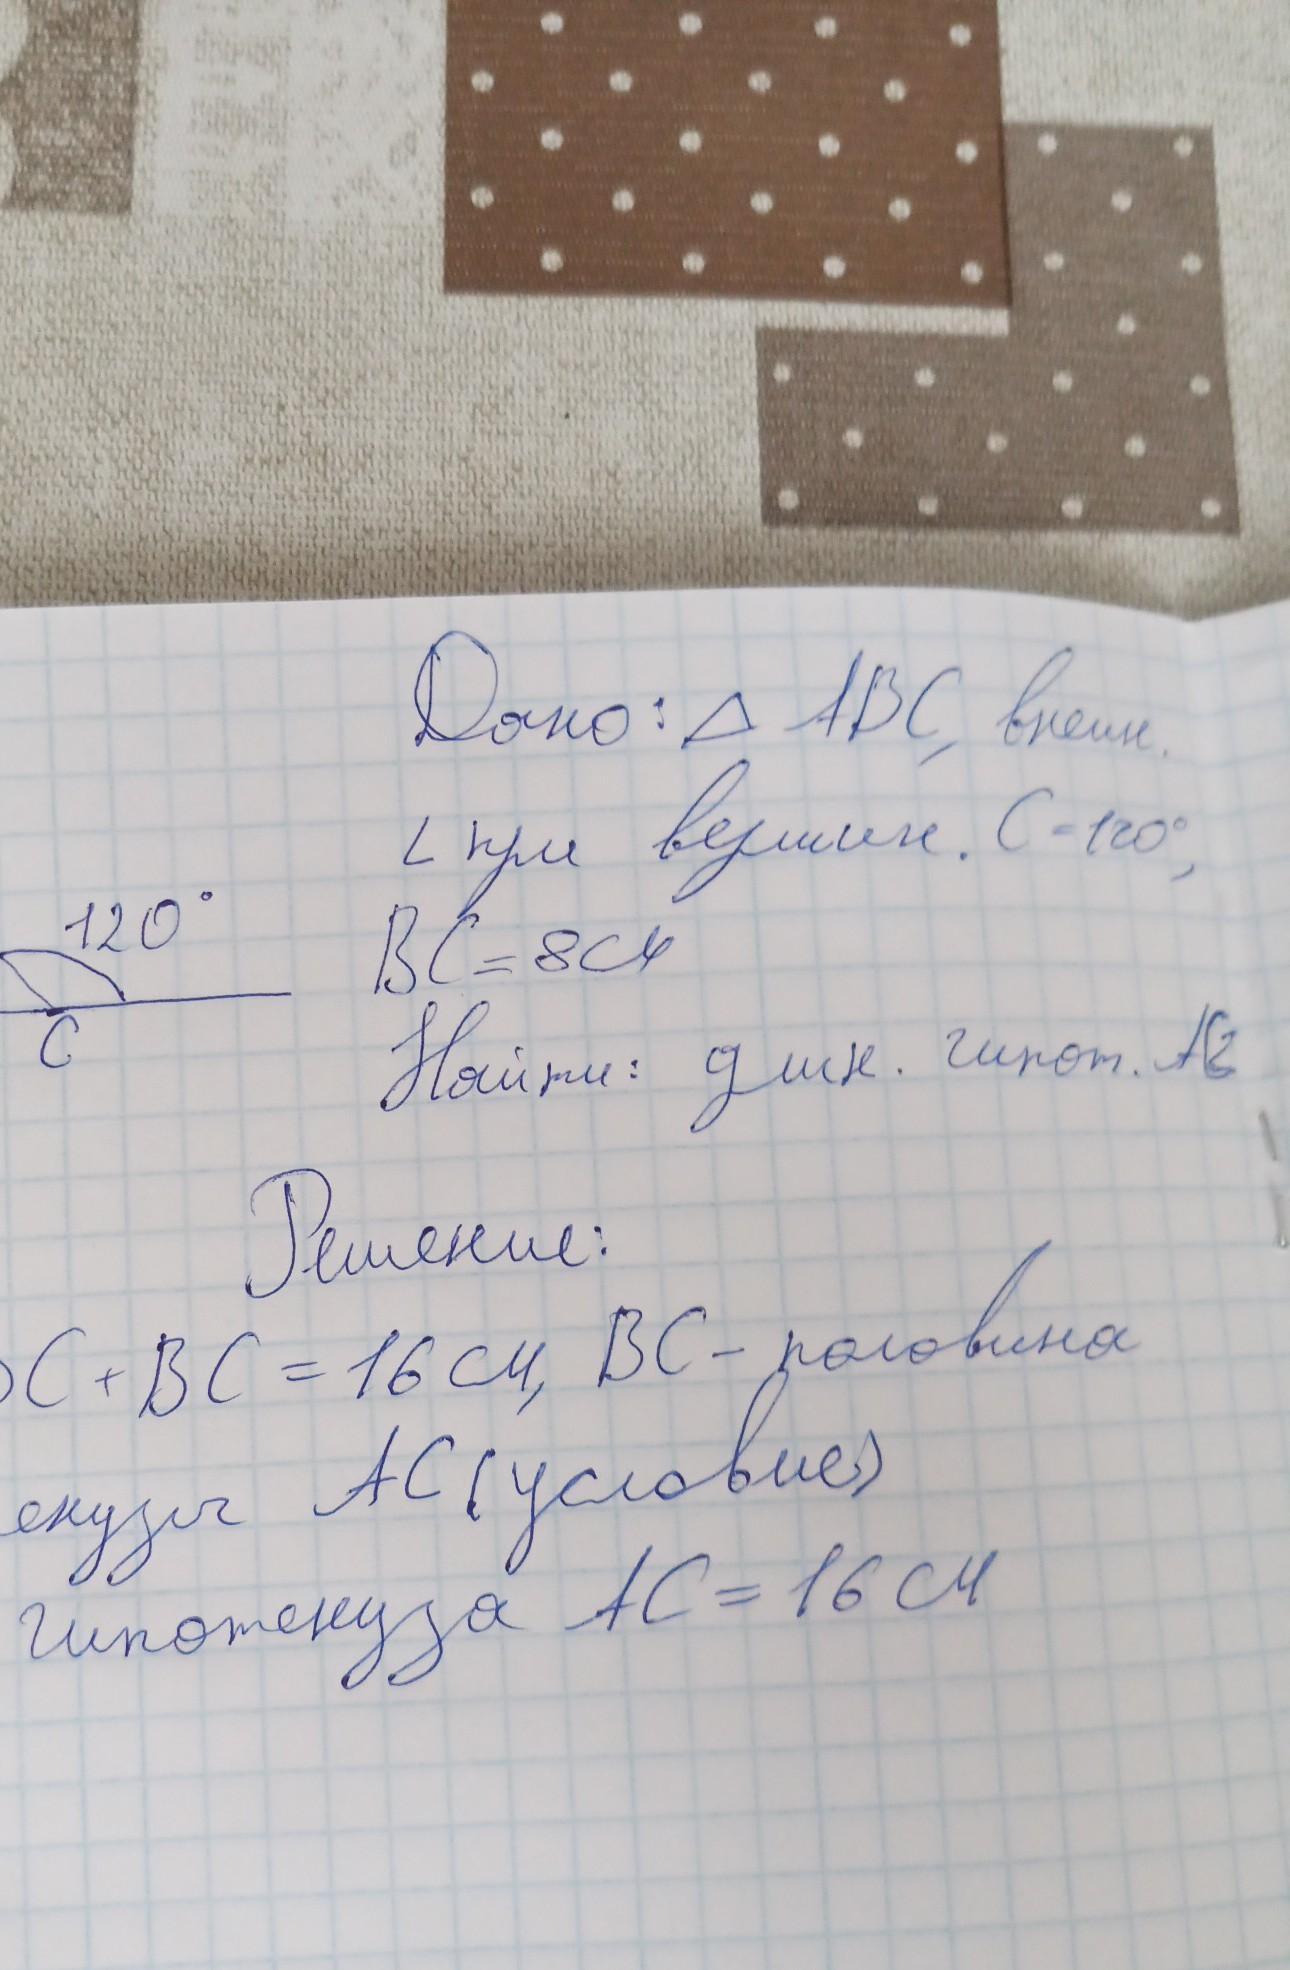 Дано: △ ABC, внешн.
∠ при вершин. C = 120°,
120°
BC = 8 см
C
Найти: длин. гипот. AC
Решение:
C + BC = 16 см, BC - половина
енузы AC (условие)
гипотенуза AC = 16 см